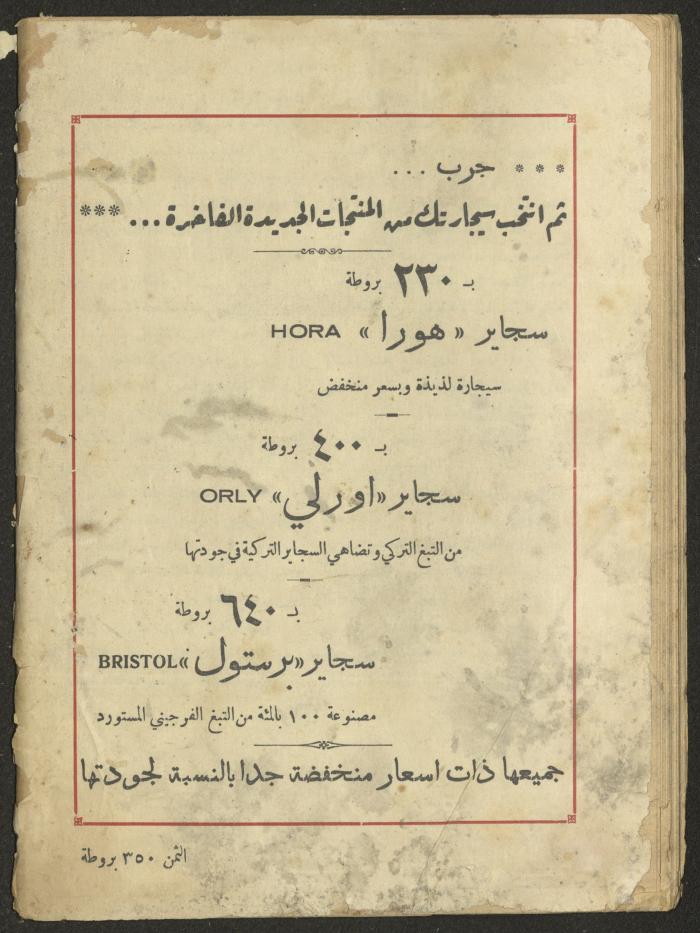 *** جرب ...
ثم انتخب سيجارتك من المنتجات الجديدة الفاخرة ... ***
بـ ٢٣٠ بروطة
سجاير «هورا» HORA
سيجارة لذيذة وبسعر منخفض
بـ ٤٠٠ بروطة
سجاير «اورلي» ORLY
من التبغ التركي وتضاهي السجاير التركية في جودتها
بـ ٦٤٠ بروطة
سجاير «برستول» BRISTOL
مصنوعة ١٠٠ بالمئة من التبغ الفرجيني المستورد
جميعها ذات اسعار منخفضة جدا بالنسبة لجودتها
الثمن ٣٥٠ بروطة